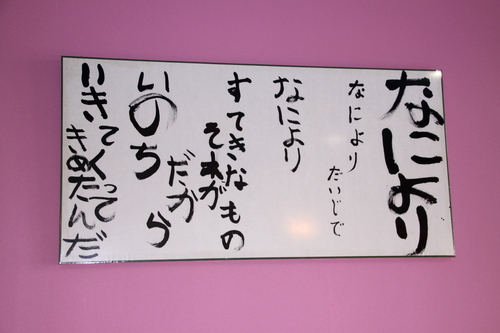 なにより
なにより
たいじで
なにより
すてきなもの
それが
いのち
だから
いきてくって
きめたんだ